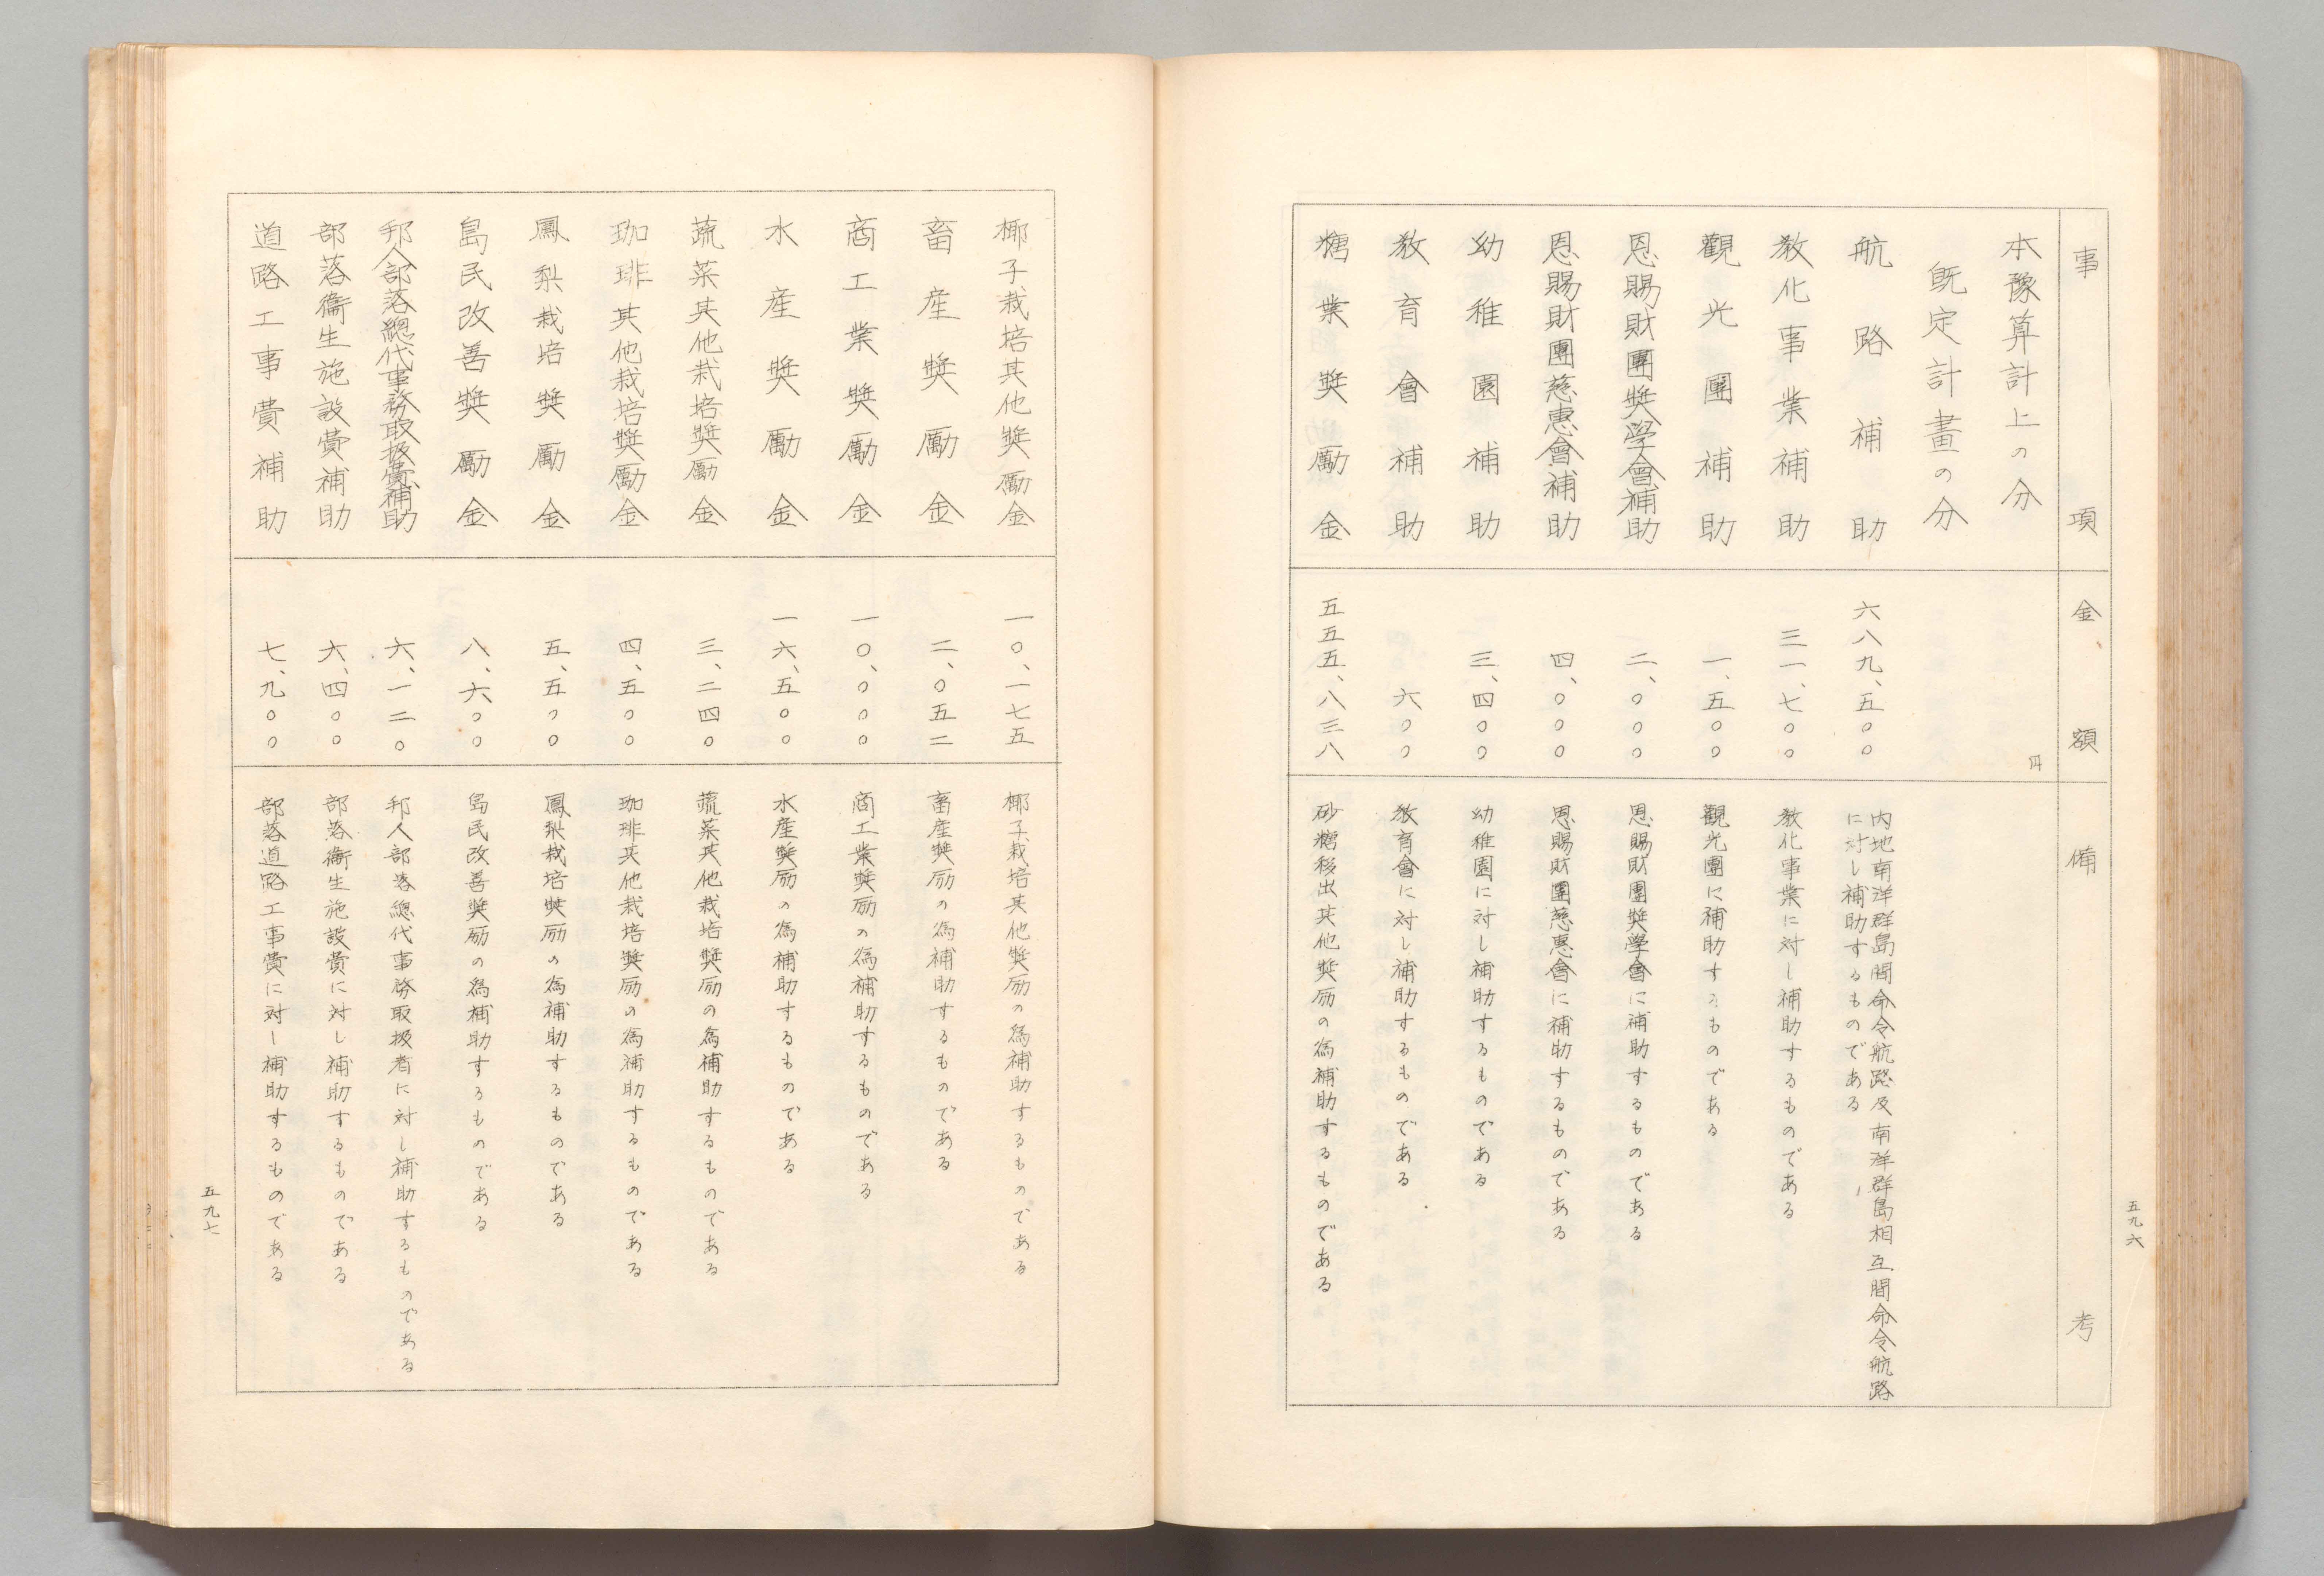 事項 金額 備考
本豫算計上の分 円
既定計畫の分
航路補助 六八九、五〇〇 内地南洋群島間命令航路及南洋群島相互間命令航路
に対し補助するものである
教化事業補助 三一、七〇〇 教化事業に対し補助するものである
觀光團補助 一、五〇〇 觀光團に補助するものである
恩賜財團奬學會補助 二、〇〇〇 恩賜財團奬學會に補助するものである
恩賜財團慈惠會補助 四、〇〇〇 恩賜財團慈惠會に補助するものである
幼稚園補助 三、四〇〇 幼稚園に対し補助するものである
教育會補助 六〇〇 教育會に対し補助するものである
糖業奬勵金 五五五、八三八 砂糖移出其他奬励の為補助するものである
五九六
椰子栽培其他奬勵金 一〇、一七五 椰子栽培其他奬励の為補助するものである
畜産奬勵金 二、〇五二 畜産奬励の為補助するものである
商工業奬勵金 一〇、〇〇〇 商工業奬励の為補助するものである
水産奬勵金 一六、五〇〇 水産奬励の為補助するものである
蔬菜其他栽培奬勵金 三、二四〇 蔬菜其他栽培奬励の為補助するものである
珈琲其他栽培奬勵金 四、五〇〇 珈琲其他栽培奬励の為補助するものである
鳳梨栽培奬勵金 五、五〇〇 鳳梨栽培奬励の為補助するものである
島民改善奬勵金 八、六〇〇 島民改善奬励の為補助するものである
邦人部落總代事務取扱費補助 六、一二〇 邦人部落總代事務取扱者に対し補助するものである
部落衞生施設費補助 六、四〇〇 部落衞生施設費に対し補助するものである
道路工事費補助 七、九〇〇 部落道路工事費に対し補助するものである
五九七